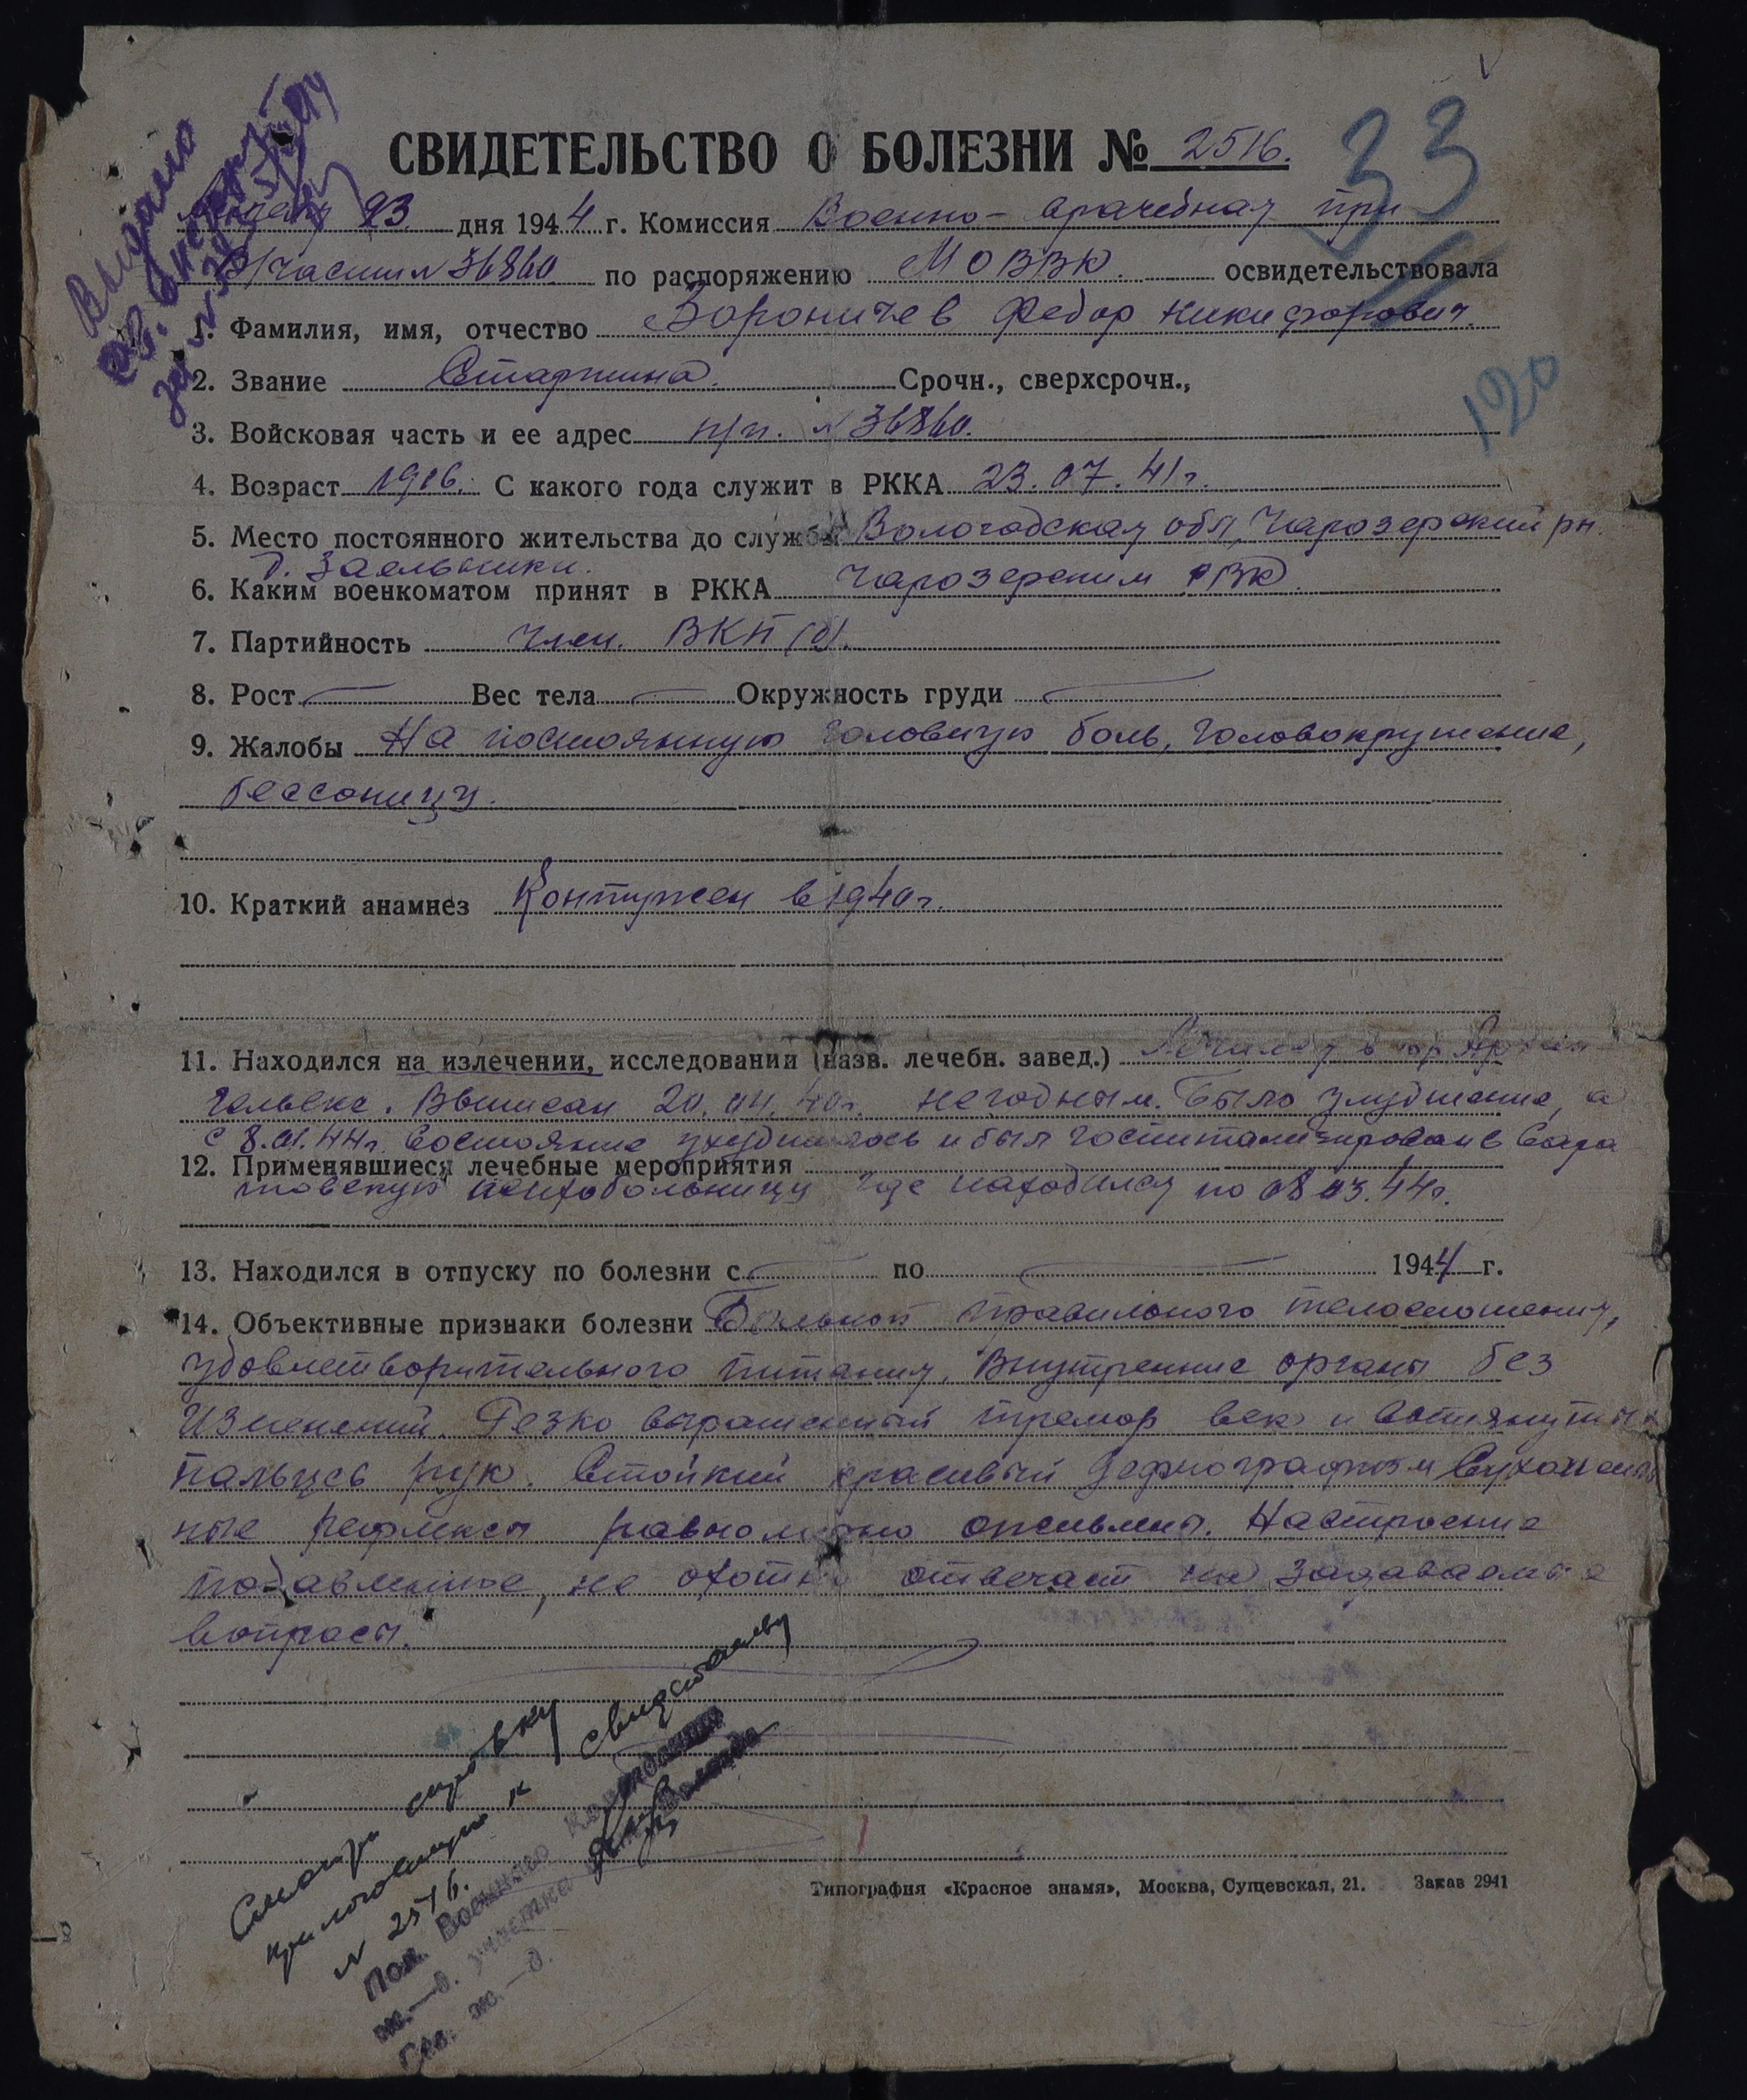 СВИДЕТЕЛЬСТВО О БОЛЕЗНИ № 2516.
33
23 дня 1944 г. Комиссия Военно-врачебная при
В/части № 36860 по распоряжению МОВВК. освидетельствовала
1. Фамилия, имя, отчество Вороничев Федор Никифорович.
2. Звание Старшина. Срочн., сверхсрочн.,
120
3. Войсковая часть и ее адрес п/п. № 36860.
4. Возраст 1916. С какого года служит в РККА 23.07.41г.
5. Место постоянного жительства до службы Вологодская обл, Чарозерский рн.
д.
6. Каким военкоматом принят в РККА Чарозерским РВК
7. Партийность Член. ВКП(б).
8. Рост — Вес тела — Окружность груди —
9. Жалобы На постоянную головную боль, головокружение,
бессоницу.
10. Краткий анамнез Контужен в 1940г.
11. Находился на излечении, исследовании (назв. лечебн. завед.) Лечился в гор Архан
гельске. Выписан 20.04.40г. негодным. Было улудшение, а
с 8.01.44г. состояние ухудшилось и был госпитализирован в Сара
12. Применявшиеся лечебные мероприятия
товскую психобольницу где находился по 08.03.44г.
13. Находился в отпуску по болезни с — по — 1944 г.
14. Объективные признаки болезни Больной правильного телосложения,
удовлетворительного питания, Внутренние органы без
изменений. Резко выраженный тремор век и вытянутых
пальцев рук. Стойкий красивый дермографизм Сухожиль
ные рефлексы равномерно оживлены. Настроение
подавленное, не охотно отвечает на задаваемые
вопросы.
Смотри
приложенную к свидетельству
№ 2516.
Пом. Военного Коменданта
ж.—д. участка
Сев. ж.—д.
Типография «Красное знамя», Москва, Сущевская, 21. Заказ 2941